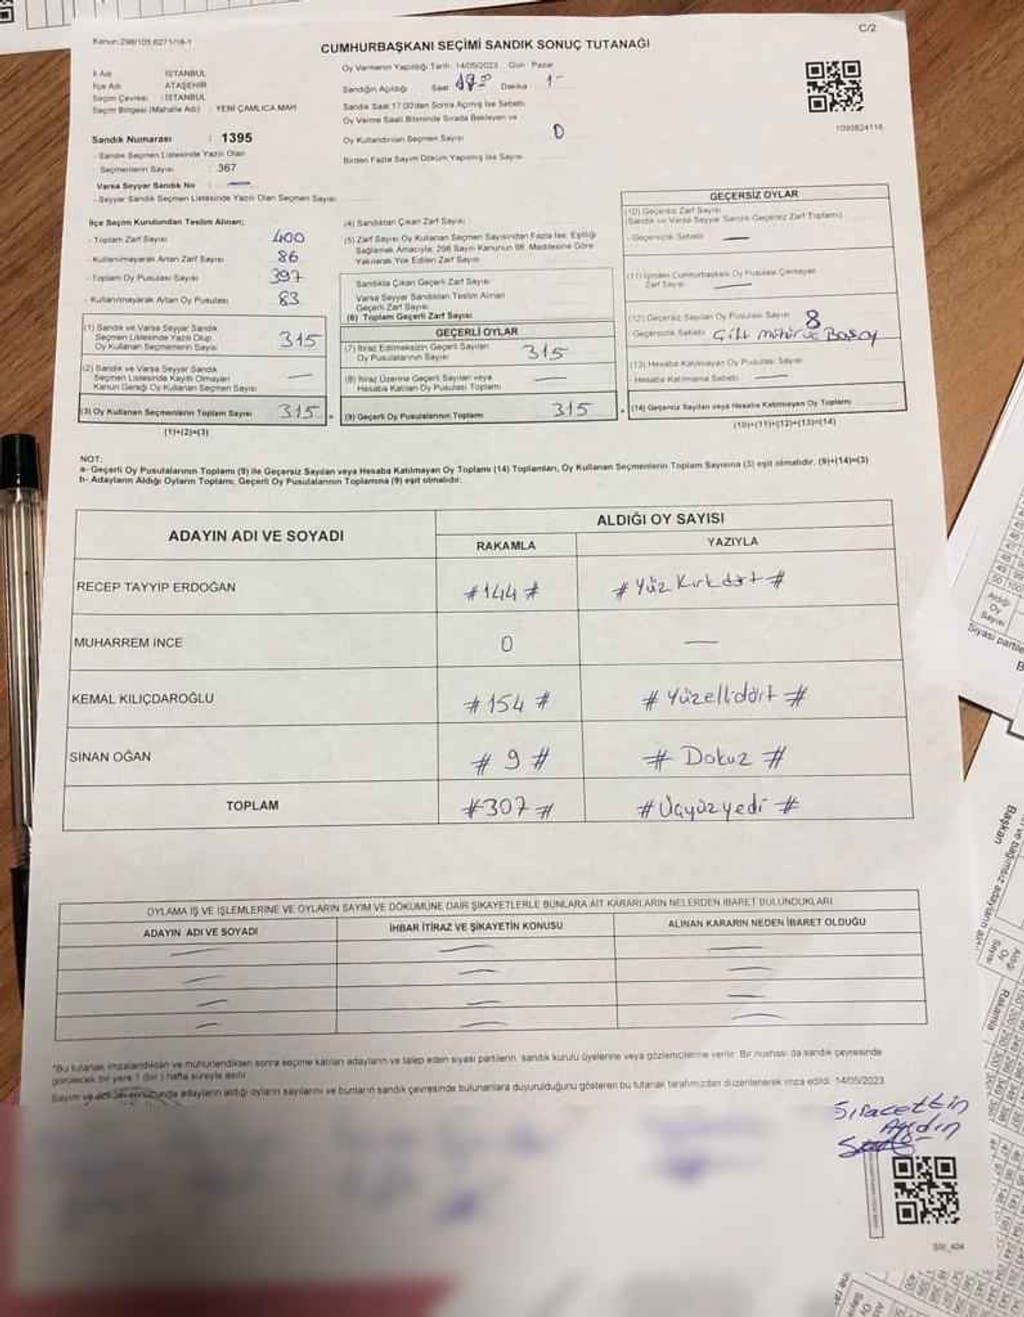 Kanun:298/105 6271/18-1
C/2
CUMHURBAŞKANI SEÇİMİ SANDIK SONUÇ TUTANAĞI
İl Adı : İSTANBUL
İlçe Adı : ATAŞEHİR
Seçim Çevresi : İSTANBUL
Seçim Bölgesi (Mahalle Adı) : YENİ ÇAMLICA MAH
Oy Vermenin Yapıldığı Tarih: 14/05/2023 Gün: Pazar
Sandığın Açıldığı Saat Dakika
Sandık Saat 17:00'den Sonra Açılmış İse Sebebi
Oy Verme Saati Bitiminde Sırada Bekleyen ve
Oy Kullandırılan Seçmen Sayısı
Birden Fazla Sayım Döküm Yapılmış İse Sayısı
1093824116
Sandık Numarası : 1395
- Sandık Seçmen Listesinde Yazılı Olan
Seçmenlerin Sayısı : 367
Varsa Seyyar Sandık No : —
- Seyyar Sandık Seçmen Listesinde Yazılı Olan Seçmen Sayısı
İlçe Seçim Kurulundan Teslim Alınan;
- Toplam Zarf Sayısı 400
- Kullanılmayarak Artan Zarf Sayısı 86
- Toplam Oy Pusulası Sayısı 397
- Kullanılmayarak Artan Oy Pusulası 83
(1) Sandık ve Varsa Seyyar Sandık
Seçmen Listesinde Yazılı Olup
Oy Kullanan Seçmenlerin Sayısı 315
(2) Sandık ve Varsa Seyyar Sandık
Seçmen Listesinde Kayıtlı Olmayan
Kanun Gereği Oy Kullanan Seçmen Sayısı —
(3) Oy Kullanan Seçmenlerin Toplam Sayısı 315
(1)+(2)=(3)
(4) Sandıktan Çıkan Zarf Sayısı
(5) Zarf Sayısı Oy Kullanan Seçmen Sayısından Fazla İse, Eşitliği
Sağlamak Amacıyla, 298 Sayılı Kanunun 98. Maddesine Göre
Yakılarak Yok Edilen Zarf Sayısı
Sandıkta Çıkan Geçerli Zarf Sayısı
Varsa Seyyar Sandıktan Teslim Alınan
Geçerli Zarf Sayısı
(6) Toplam Geçerli Zarf Sayısı
GEÇERLİ OYLAR
(7) İtiraz Edilmeksizin Geçerli Sayılan
Oy Pusulalarının Sayısı 315
(8) İtiraz Üzerine Geçerli Sayılan veya
Hesaba Katılan Oy Pusulası Toplamı —
(9) Geçerli Oy Pusulalarının Toplamı 315
GEÇERSİZ OYLAR
(10) Geçersiz Zarf Sayısı
(Sandık ve Varsa Seyyar Sandık Geçersiz Zarf Toplamı)
- Geçersizlik Sebebi —
(11) İçinden Cumhurbaşkanı Oy Pusulası Çıkmayan
Zarf Sayısı —
(12) Geçersiz Sayılan Oy Pusulası Sayısı 8
Geçersizlik Sebebi Çift mühür ve
(13) Hesaba Katılmayan Oy Pusulası Sayısı
- Hesaba Katılmama Sebebi —
(14) Geçersiz Sayılan veya Hesaba Katılmayan Oy Toplamı
(10)+(11)+(12)+(13)=(14)
NOT:
a- Geçerli Oy Pusulalarının Toplamı (9) ile Geçersiz Sayılan veya Hesaba Katılmayan Oy Toplamı (14) Toplamları, Oy Kullanan Seçmenlerin Toplam Sayısına (3) eşit olmalıdır. (9)+(14)=(3)
b- Adayların Aldığı Oyların Toplamı, Geçerli Oy Pusulalarının Toplamına (9) eşit olmalıdır.
ADAYIN ADI VE SOYADI
ALDIĞI OY SAYISI
RAKAMLA YAZIYLA
RECEP TAYYİP ERDOĞAN #144# #Yüz Kırkdört#
MUHARREM İNCE 0 —
KEMAL KILIÇDAROĞLU #154# #Yüzellidört#
SİNAN OĞAN #9# #Dokuz#
TOPLAM #307# #Üçyüzyedi#
OYLAMA İŞ VE İŞLEMLERİNE VE OYLARIN SAYIM VE DÖKÜMÜNE DAİR ŞİKAYETLERLE BUNLARA AİT KARARLARIN NELERDEN İBARET BULUNDUKLARI
ADAYIN ADI VE SOYADI İHBAR İTİRAZ VE ŞİKAYETİN KONUSU ALINAN KARARIN NEDEN İBARET OLDUĞU
*Bu tutanak imzalandıktan ve mühürlendikten sonra seçime katılan adayların ve talep eden siyasi partilerin, sandık kurulu üyelerine veya gözlemcilerine verilir. Bir nüshası da sandık çevresinde
görülecek bir yere 1 (bir) hafta süreyle asılır.
adayların aldığı oyların sayılarını ve bunların sandık çevresinde bulunanlara duyurulduğunu gösteren bu tutanak tarafımızdan düzenlenerek imza edildi. 14/05/2023
Siracettin
Aydın